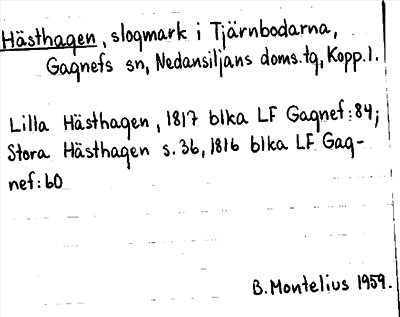 Hästhagen, slogmark i Tjärnbodarna,
Gagnefs sn, Nedansiljans doms.tg, Kopp.l.
Lilla Hästhagen, 1817 blka LF Gagnef:84;
Stora Hästhagen s.36, 1816 blka LF Gag-
nef:60
B. Montelius 1959.